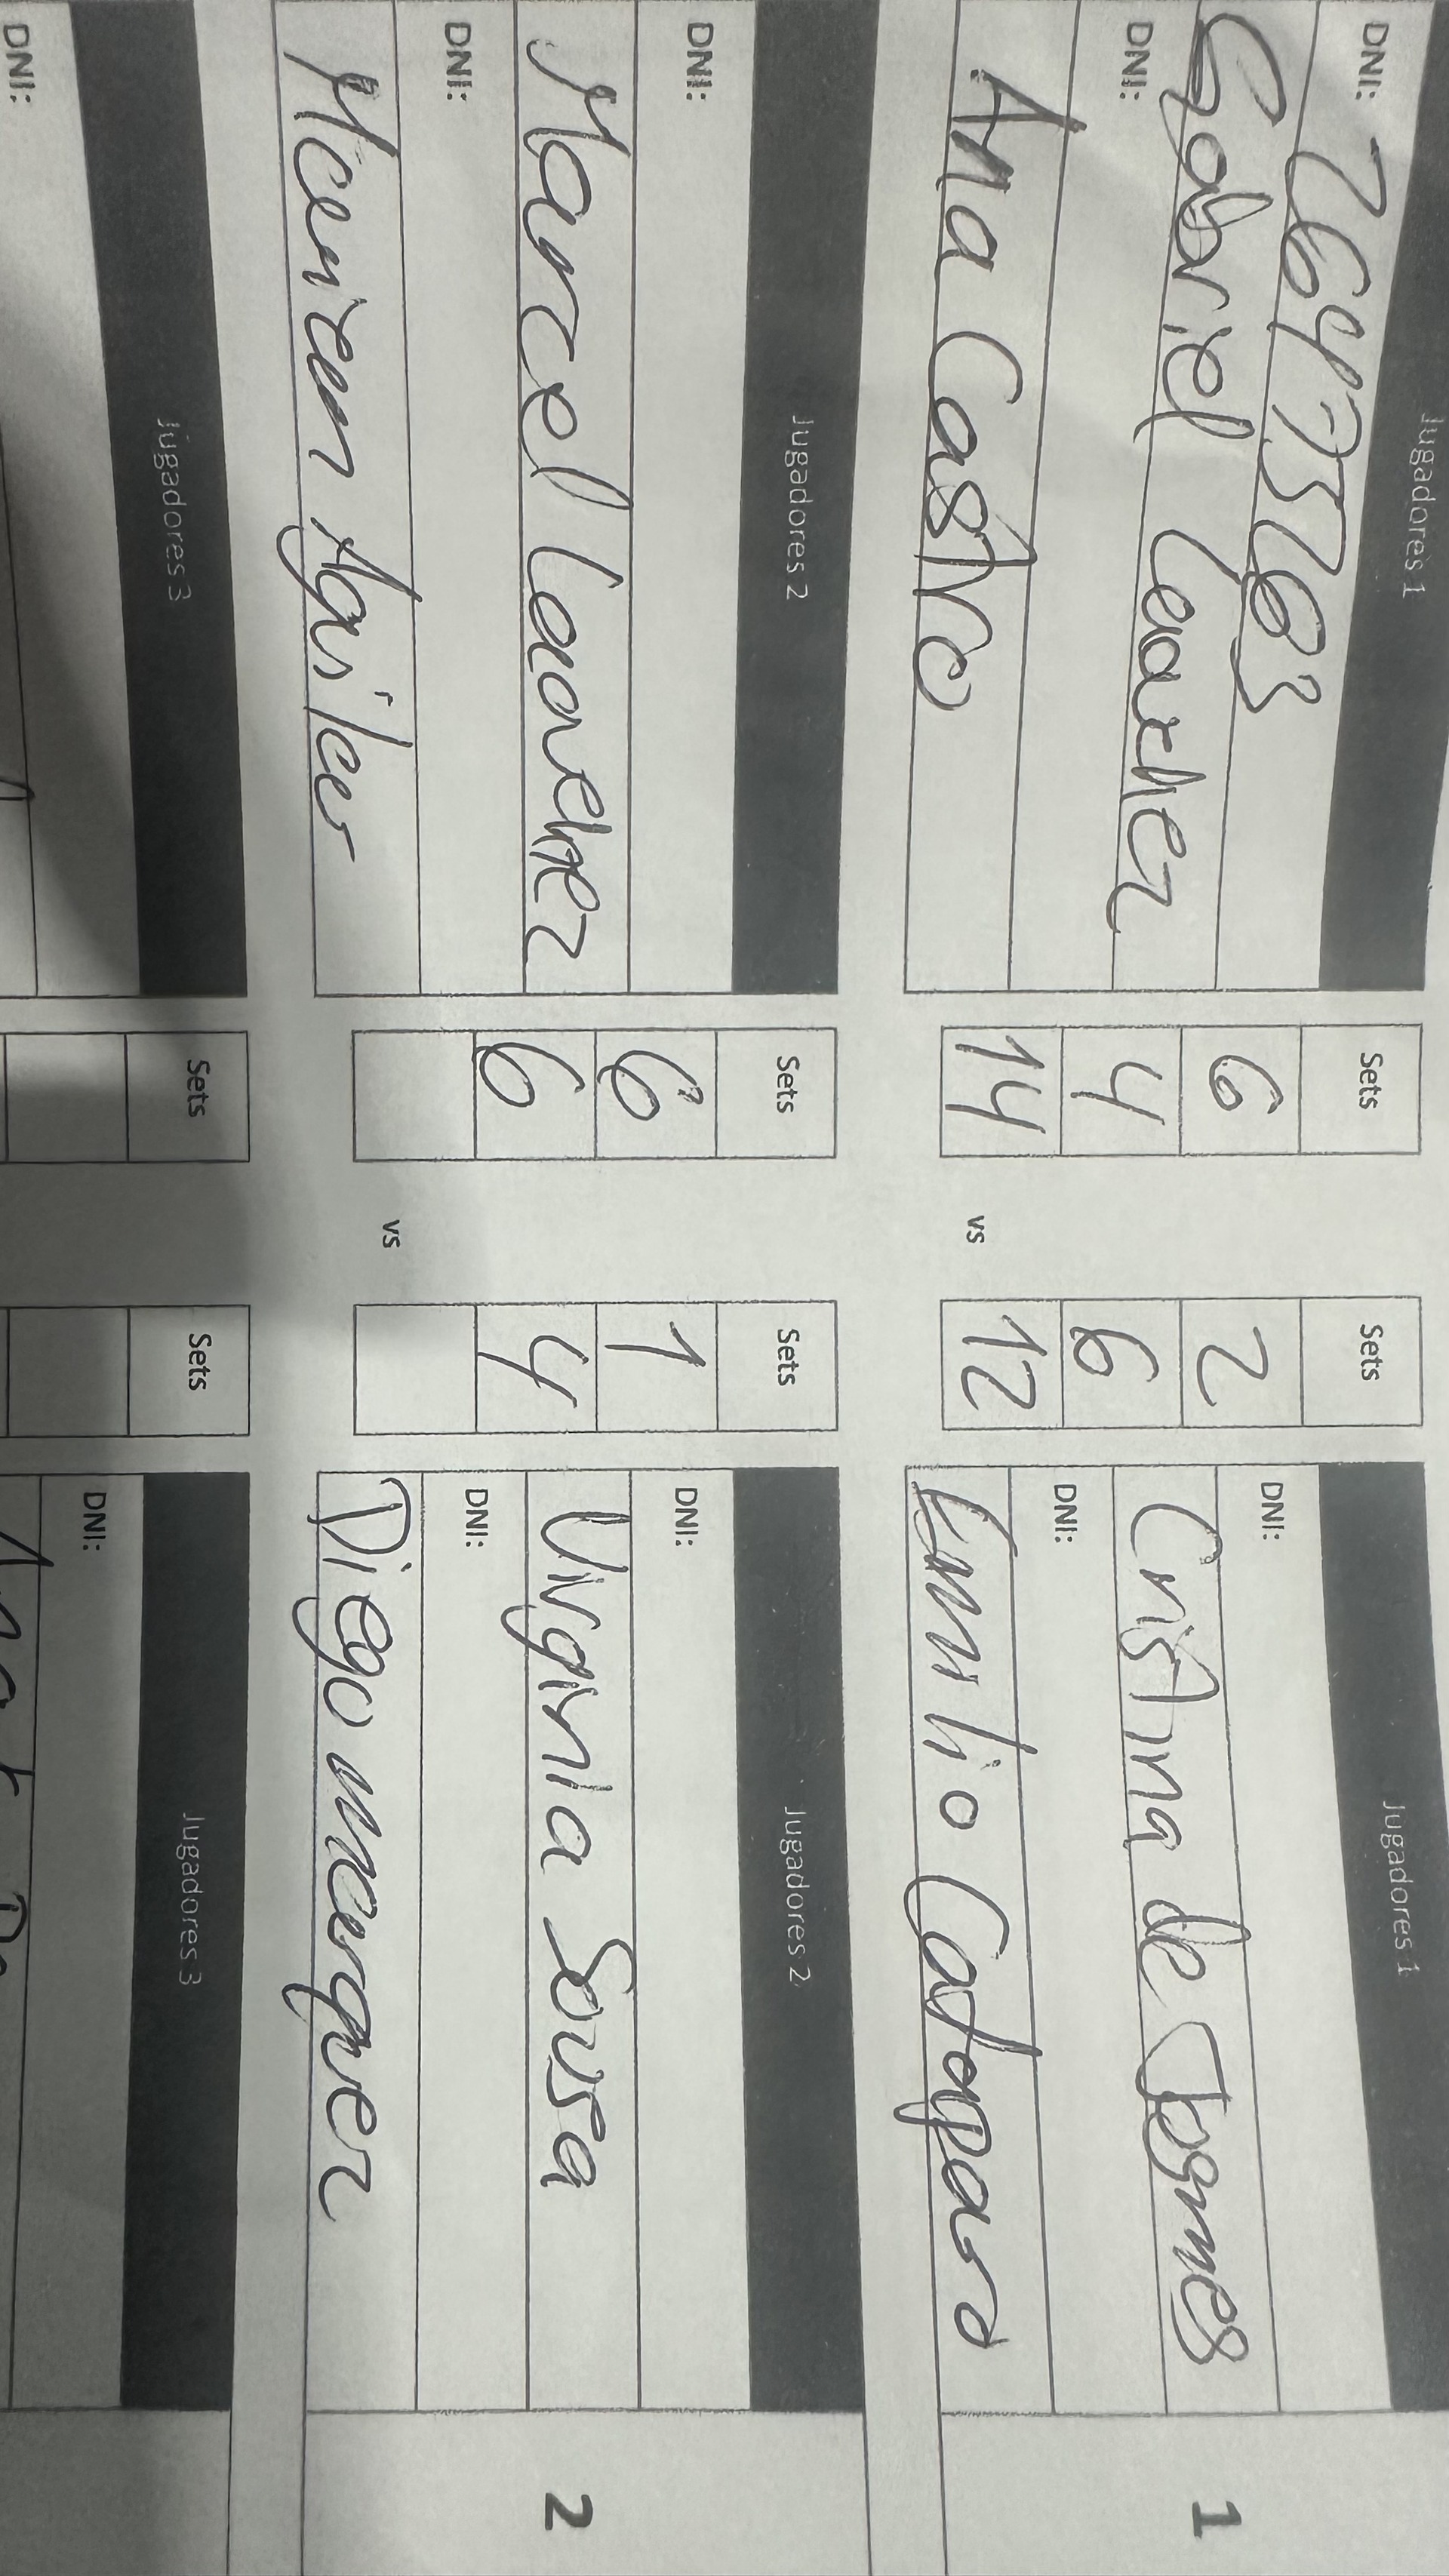 Jugadores 1
DNI: 76473763
Gabriel
DNI:
Ana Castro
Sets
6
4
14
vs
Sets
2
6
12
Jugadores 1
DNI:
Cristina de Tognes
DNI:
Emilio Catapano
1
Jugadores 2
DNI:
Marcel
DNI:
Aguilar
Sets
6
6
vs
Sets
1
4
Jugadores 2
DNI:
Virginia Sousa
DNI:
Diego marquez
2
Jugadores 3
DNI:
Sets
Sets
Jugadores 3
DNI: